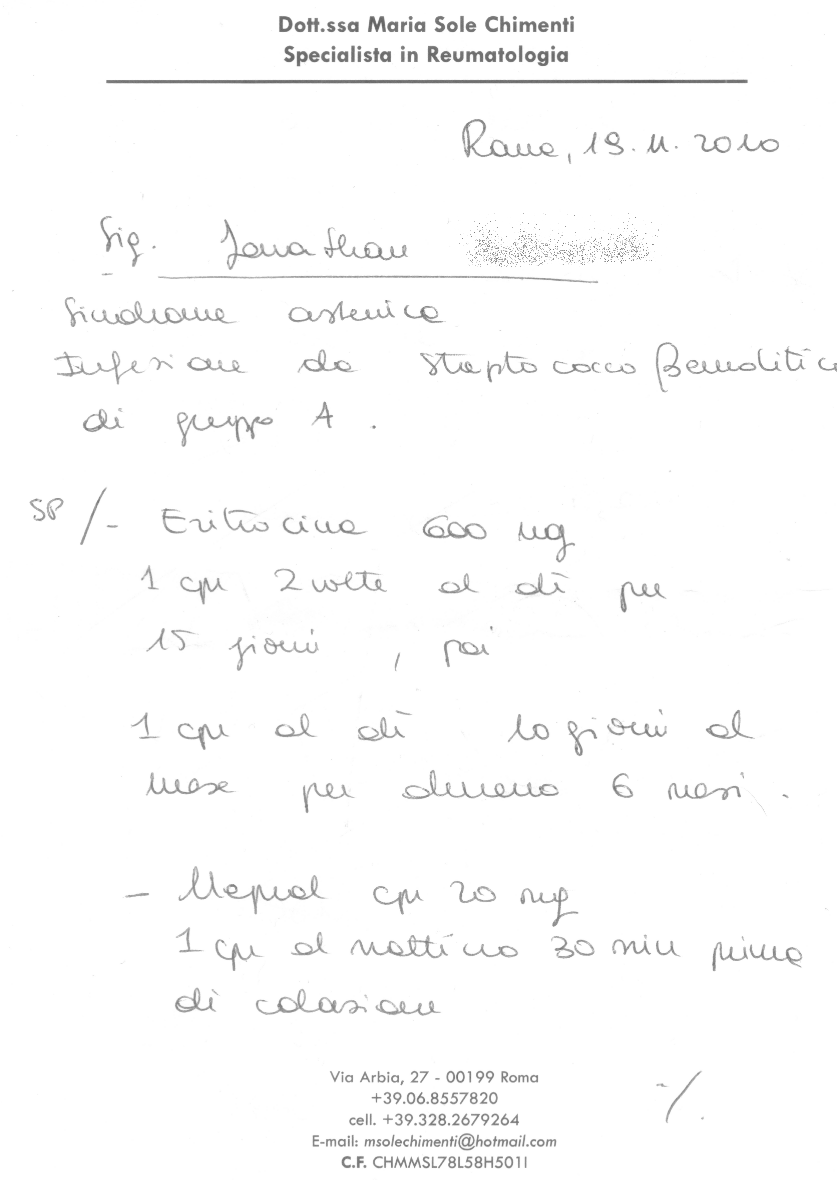 Dott.ssa Maria Sole Chimenti
Specialista in Reumatologia
Roma, 19.11.2010
Sig. Jonathan
Sindrome astenica
Infezione da Streptococco βemolitico
di gruppo A.
SP/- Eritrocina 600 mg
1 cpr 2 volte al dì per
15 giorni, poi
1 cpr al dì 10 giorni al
mese per almeno 6 mesi.
- Mepral cpr 20 mg
1 cpr al mattino 30 min prima
di colazione
Via Arbia, 27 - 00199 Roma
+39.06.8557820
cell. +39.328.2679264
E-mail: msolechimenti@hotmail.com
C.F. CHMMSL78L58H501I
-/.